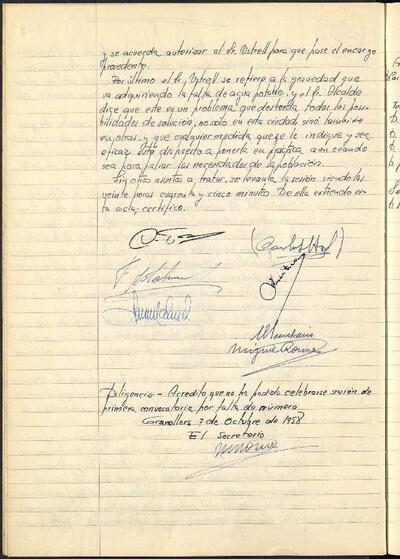 y se acuerda autorizar al Sr. Vstrell para que pase el encargo
procedente.
Por último el Sr. Vstrell se refiere a la gravedad que
va adquiriendo la falta de agua potable, y el Sr. Alcalde
dice que este es un problema que desborda todas las posi-
bilidades de solución, no solo en esta ciudad sinó también
en otras, y que cualquier medida que se le indique y sea
eficaz está dispuesto a ponerla en práctica aun cuando
sea para paliar las necesidades de la población.
Sin otros asuntos a tratar, se levanta la sesión siendo las
veinte horas cuarenta y cinco minutos. De ella extiendo es-
ta acta, certifico.
El Secretario
Miguel
Diligencia - Acredito que no ha podido celebrarse sesión de
primera convocatoria por falta de número
Granollers 7 de Octubre de 1958
El Secretario